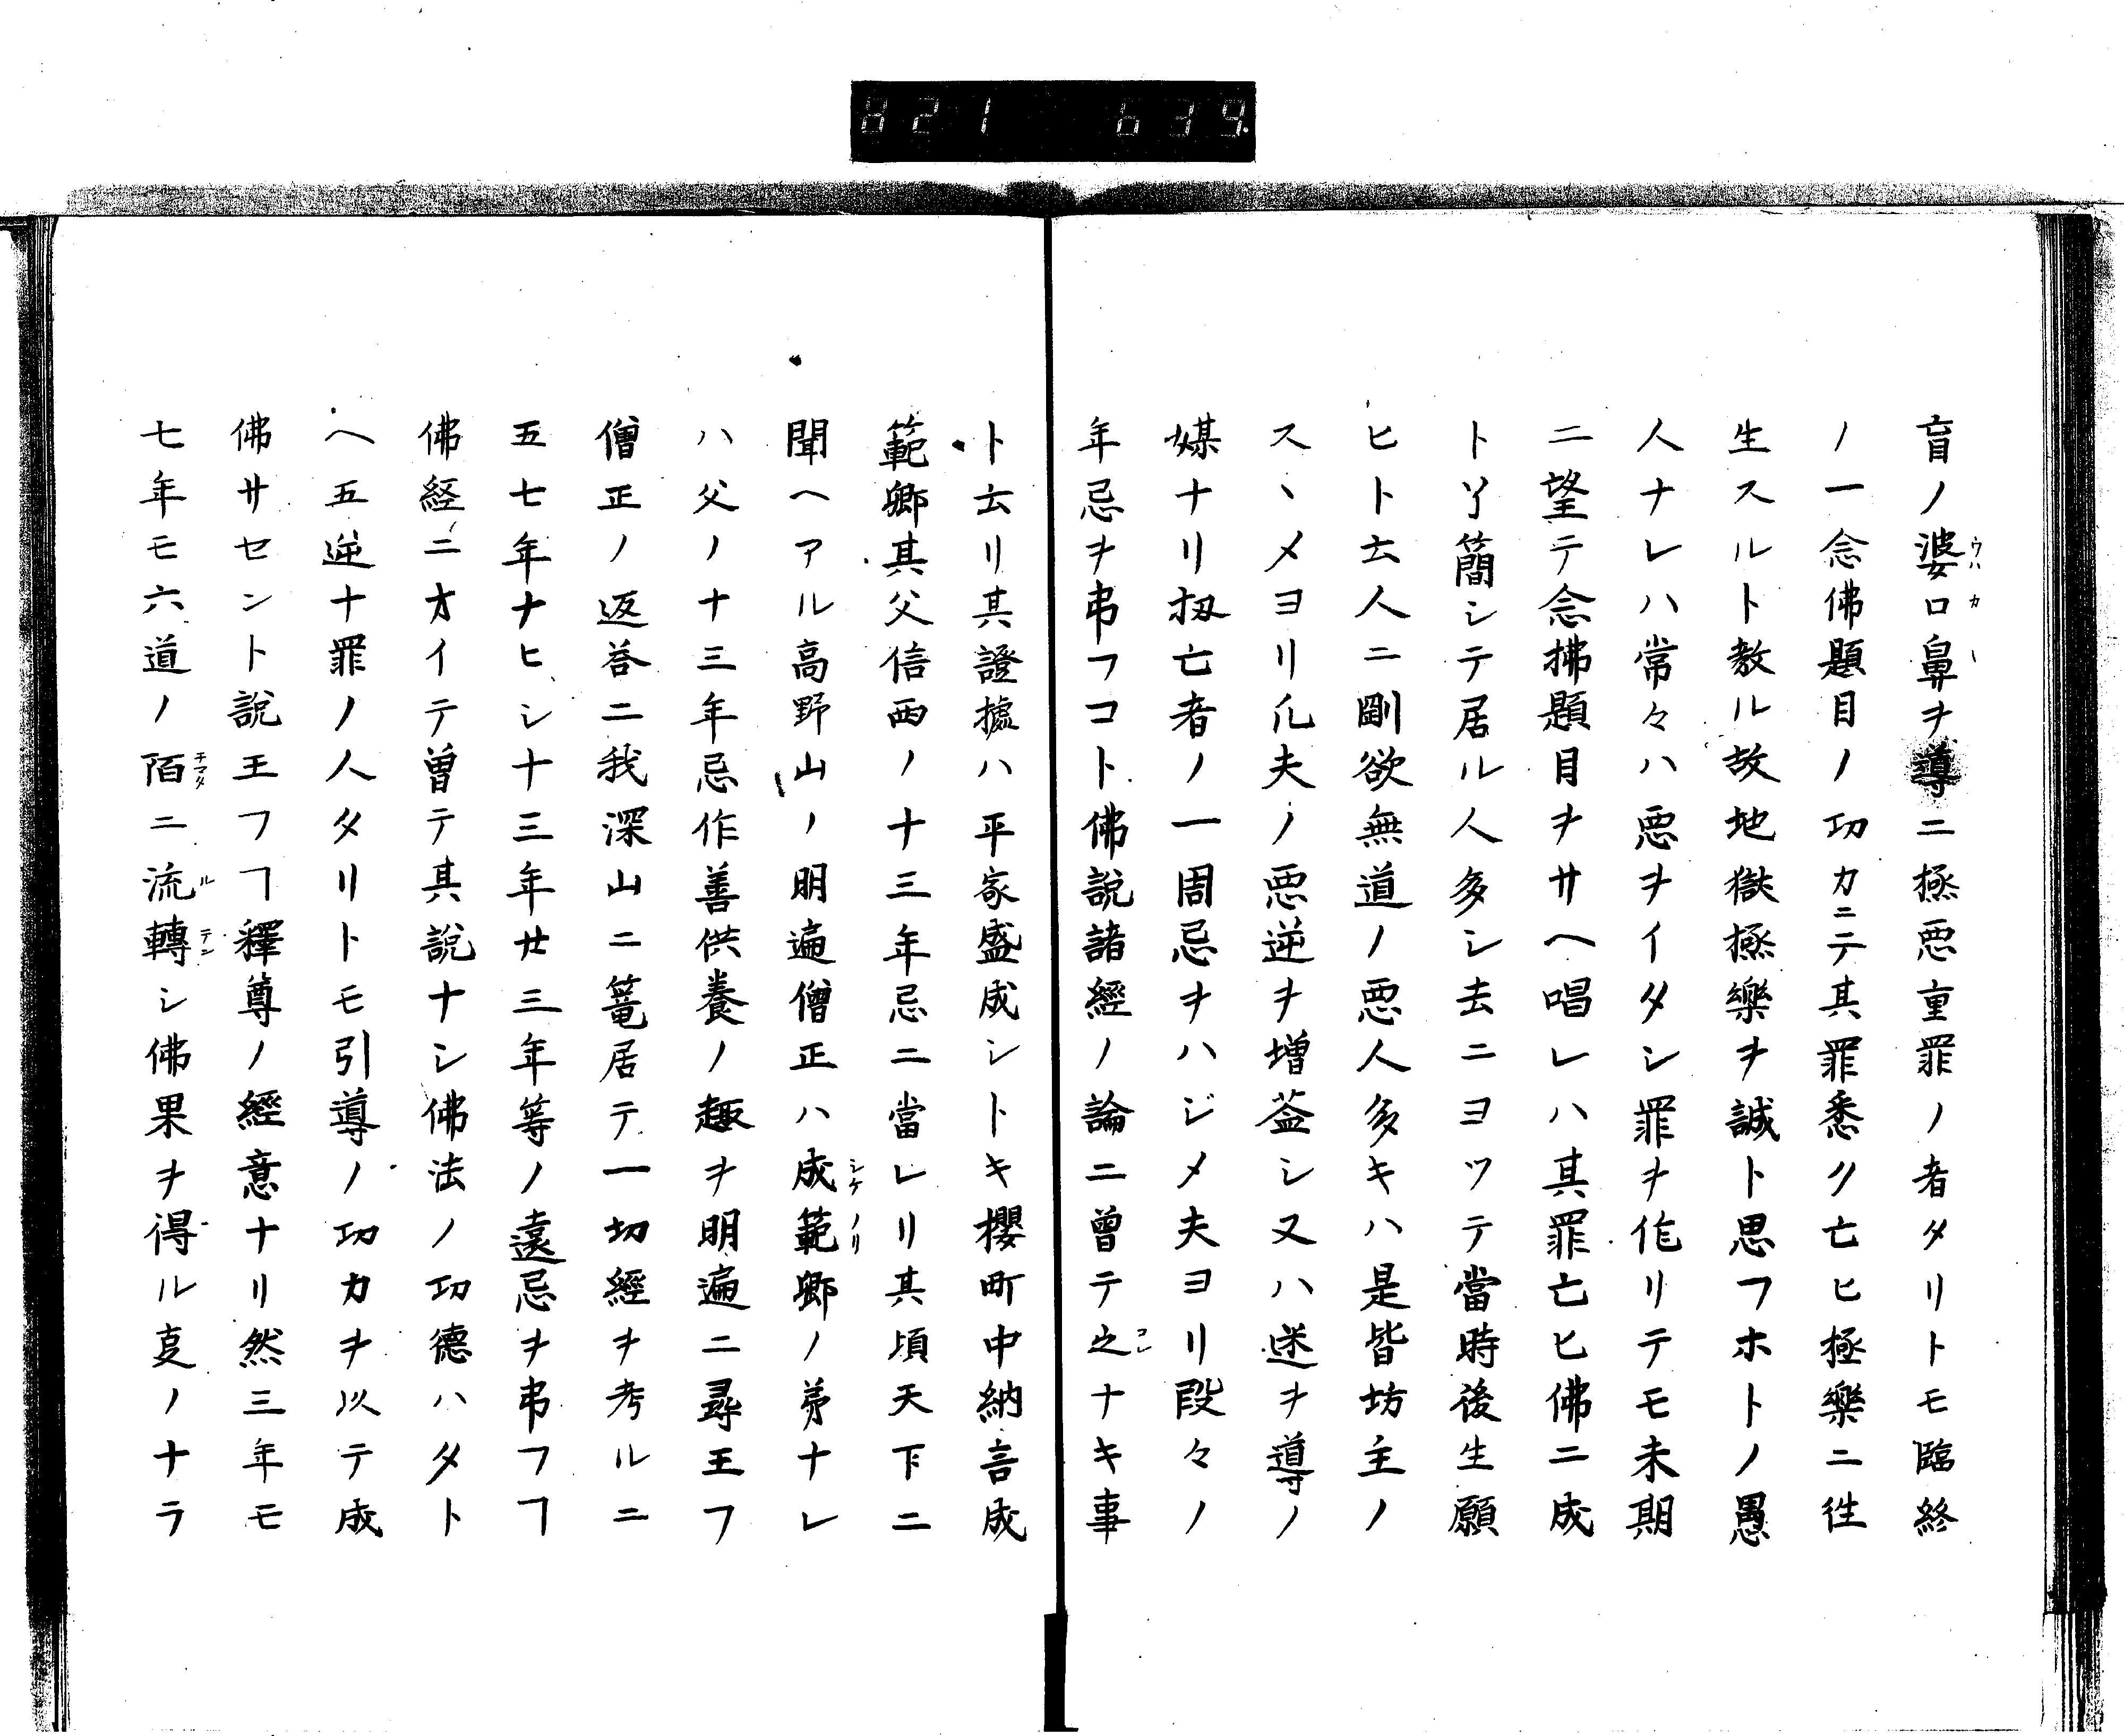 821 639.
盲ノ婆口鼻ヲ導ニ極悪重罪ノ者タリトモ臨終
ノ一念佛題目ノ功力ニテ其罪悉ク亡ヒ極樂ニ徃
生スルト教ル故地獄極樂ヲ誠ト思フホトノ愚
人ナレハ常々ハ悪ヲイタシ罪ヲ作リテモ末期
ニ望テ念拂題目ヲサヘ唱レハ其罪亡ヒ佛ニ成
ト了簡シテ居ル人多シ去ニヨツテ當時後生願
ヒト云人ニ剛欲無道ノ悪人多キハ是皆坊主ノ
スヽメヨリ凡夫ノ悪逆ヲ増益シ又ハ迷ヲ導ノ
媒ナリ扨亡者ノ一周忌ヲハジメ夫ヨリ段々ノ
年忌ヲ弔フコト佛説諸經ノ論ニ曽テ之ナキ事
ト云リ其證據ハ平家盛成シトキ櫻町中納言成
範卿其父信西ノ十三年忌ニ當レリ其頃天下ニ
聞ヘアル高野山ノ明遍僧正ハ成範卿ノ弟ナレ
ハ父ノ十三年忌作善供養ノ趣ヲ明遍ニ尋玉フ
僧正ノ返答ニ我深山ニ篭居テ一切經ヲ考ルニ
五七年ナヒシ十三年廿三年等ノ遠忌ヲ弔フヿ
佛経ニオイテ曽テ其説ナシ佛法ノ功德ハタト
ヘ五逆十罪ノ人タリトモ引導ノ功力ヲ以テ成
佛サセント説玉フヿ釋尊ノ經意ナリ然三年モ
七年モ六道ノ陌ニ流轉シ佛果ヲ得ル叓ノナラ